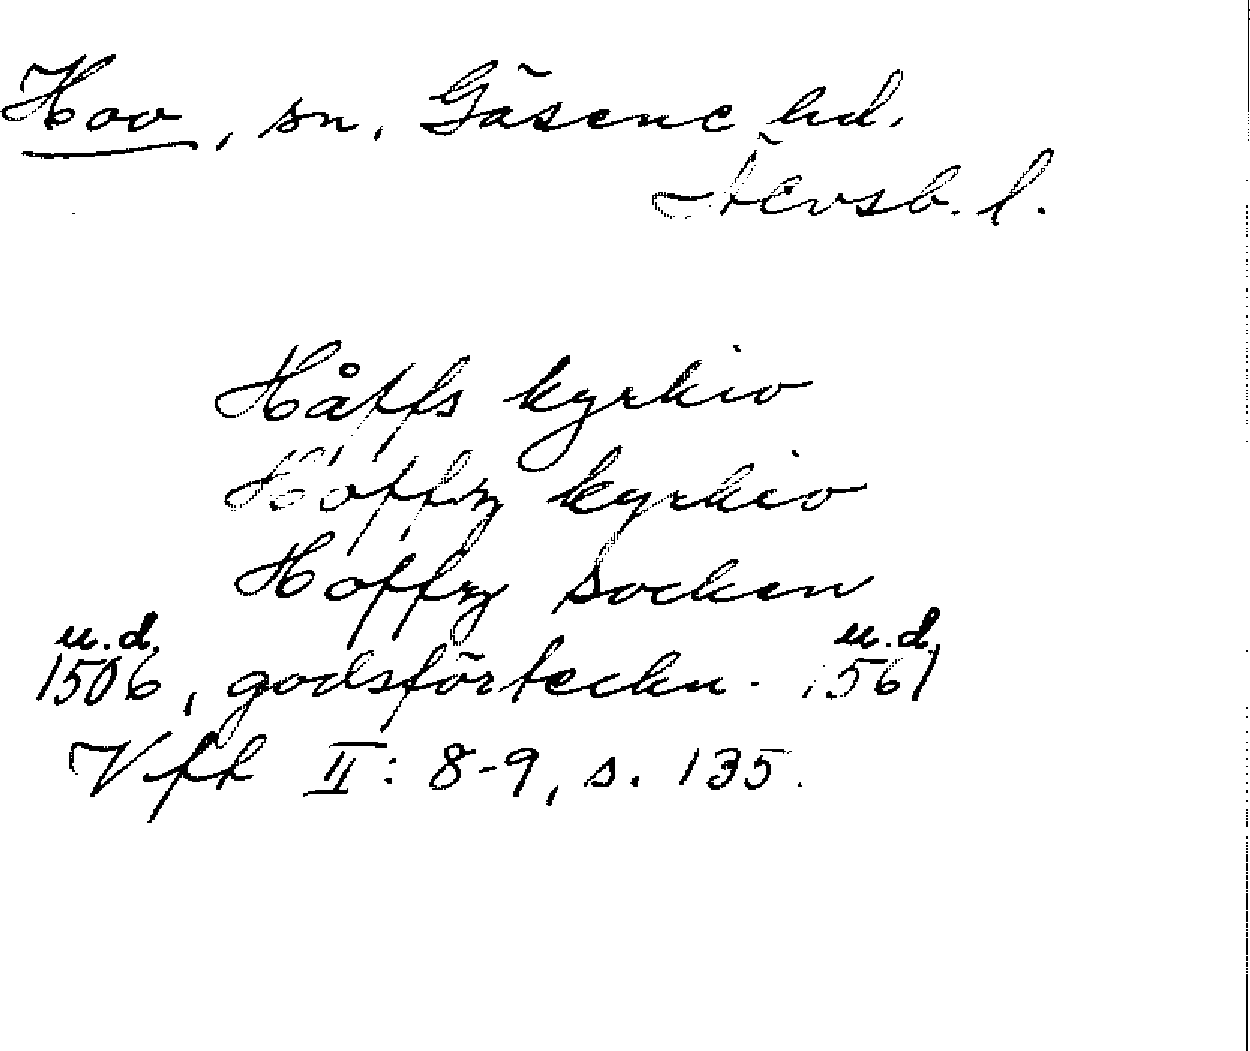 Hov, sn. Gäsene hd.
Älvsb. l.
Håffs kyrkio
Hoffz kyrkio
Hoffz socken
u.d. u.d.
1506, godsförteckn. 1561
Vfh II: 8-9, s. 135.